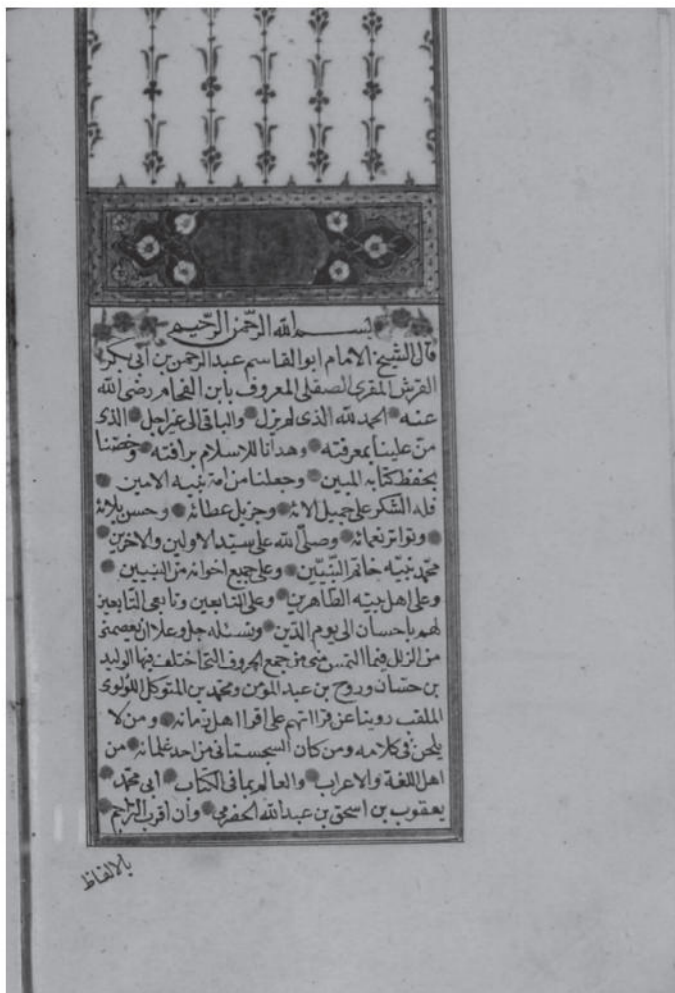 بسم الله الرحمن الرحيم
قال الشيخ الامام ابو القاسم عبد الرحمن بن ابى بكر
القرشى المقرى الصقلى المعروف بابن الفحام رضى الله
عنه الحمد لله الذى لم يزل والباقى الى غير اجل الذى
من علينا بمعرفته وهدانا للاسلام برافته وخصنا
بحفظ كتابه المبين وجعلنا من امة نبيه الامين
فله الشكر على جميل الائه وجزيل عطائه وحسن بلائه
وتواتر نعمائه وصلى الله على سيد الاولين والاخرين
محمد نبيه خاتم النبيين وعلى جميع اخوانه من النبيين
وعلى اهل بيته الطاهرين وعلى التابعين وتابعى التابعين
لهم باحسان الى يوم الدين ونسئله جل وعلا ان يعصمنى
من الزلل فيما التمس منى من جمع الحروف التى اختلف فيها الوليد
بن حسان وروح بن عبد المؤمن ومحمد بن المتوكل اللولوى
الملقب رويسا عن قراءتهم على اقرا اهل زمانه ومن لا
يلحن فى كلامه ومن كان السجستانى من احد غلمانه من
اهل اللغة والاعراب والعالم بما فى الكتاب ابى محمد
يعقوب بن اسحق بن عبد الله الحضرمى وان اقرب التراجم
بالالفاظ